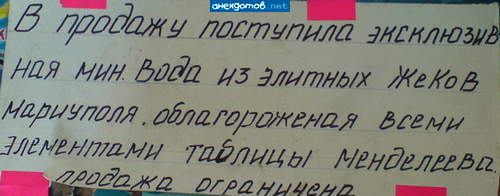 анекдотов.net
В продажу поступила эксклюзив
ная мин. Вода из элитных Жеков
мариуполя. облагороженая всеми
элементами таблицы менделеева
продажа ограничена